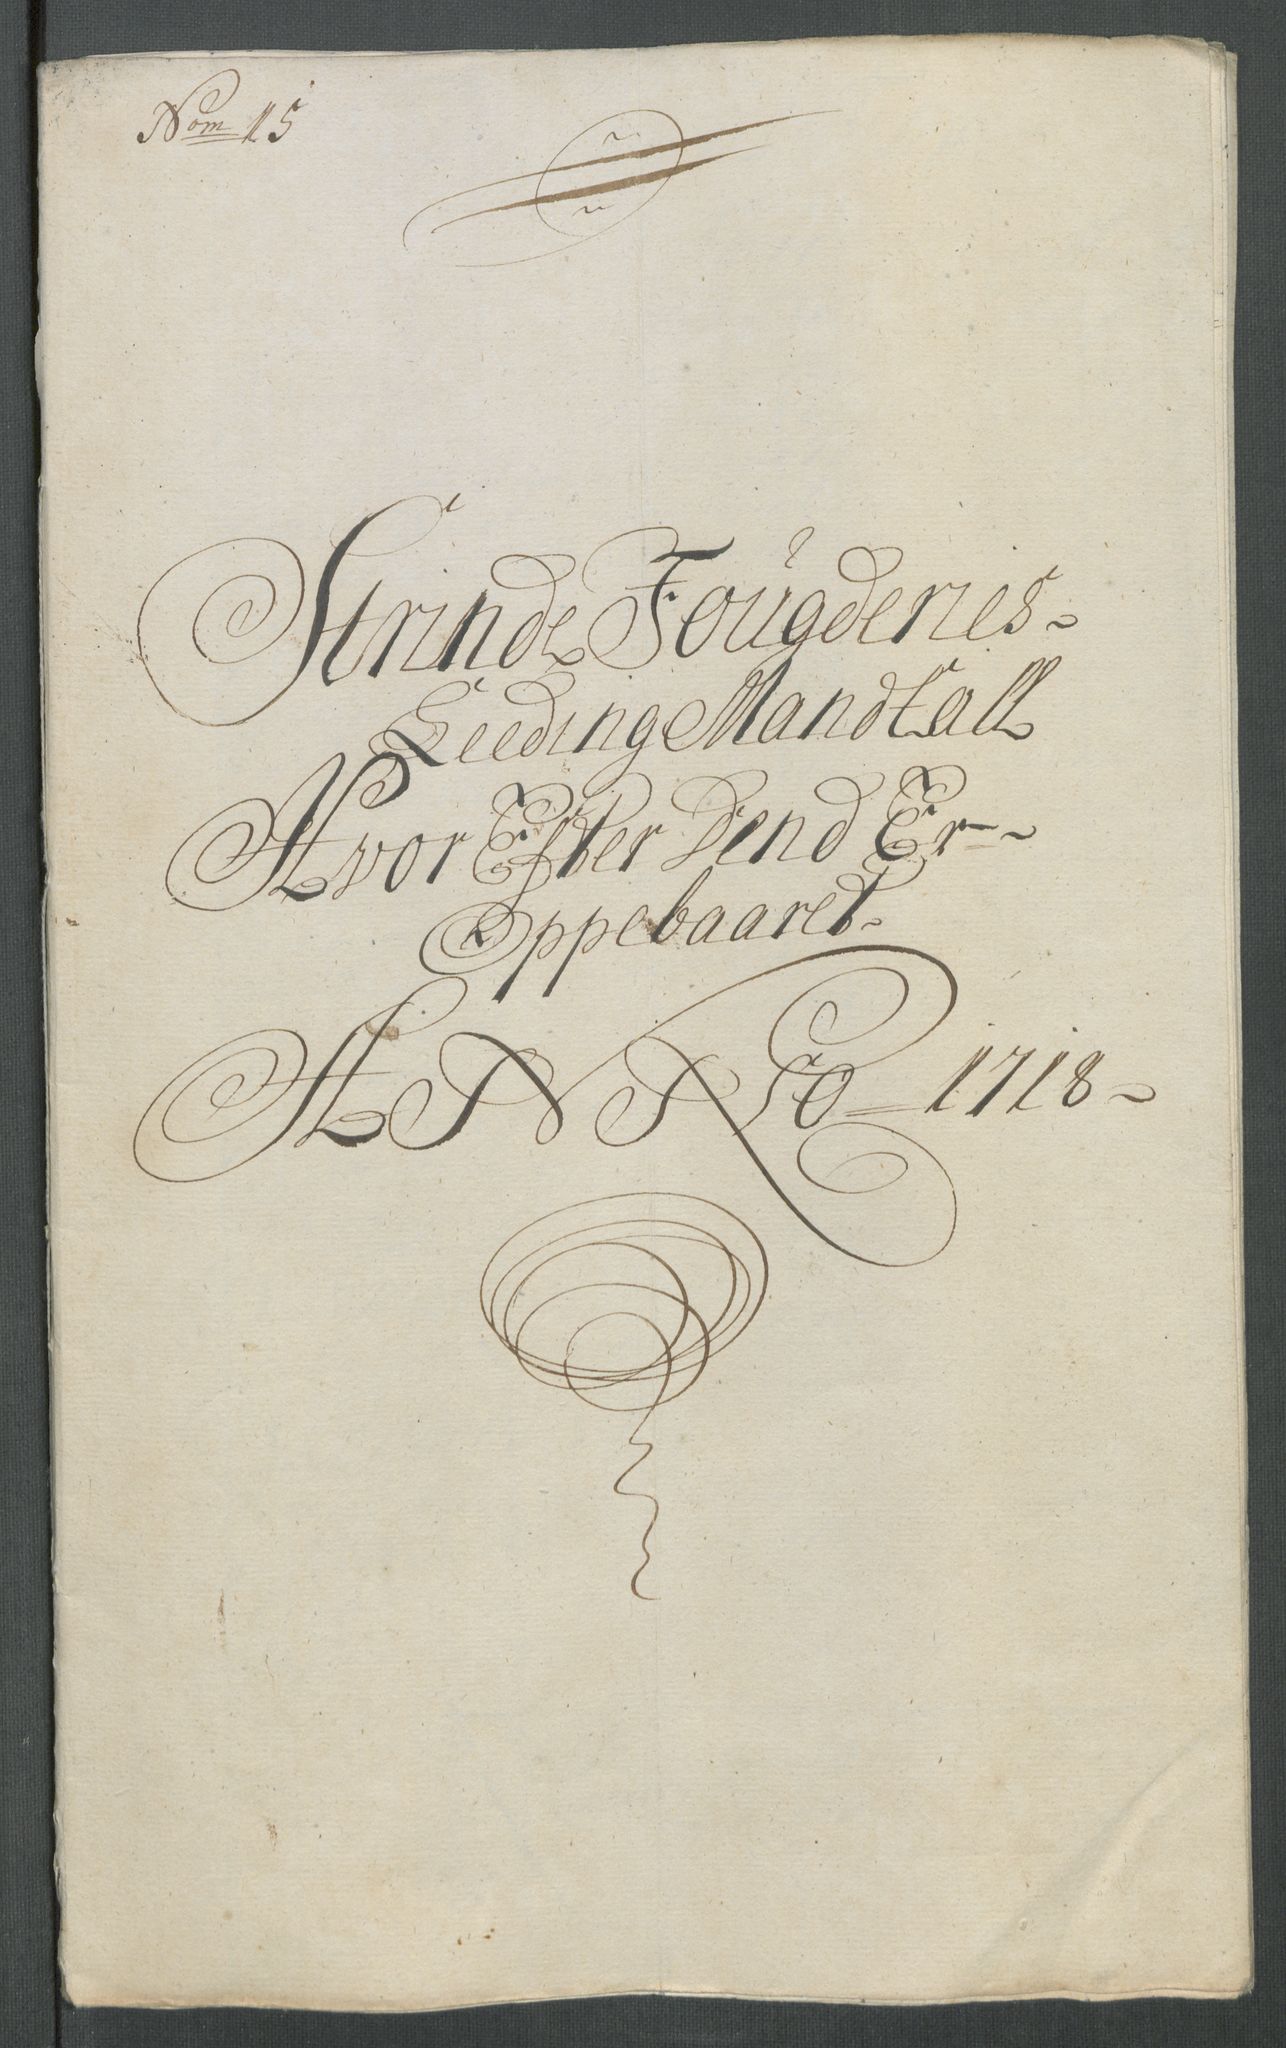 Nom 15
Strinde Foùgderies
Leeding Mandtall
Hvor Efter dend Er
Oppebaaret
ANNO 1718